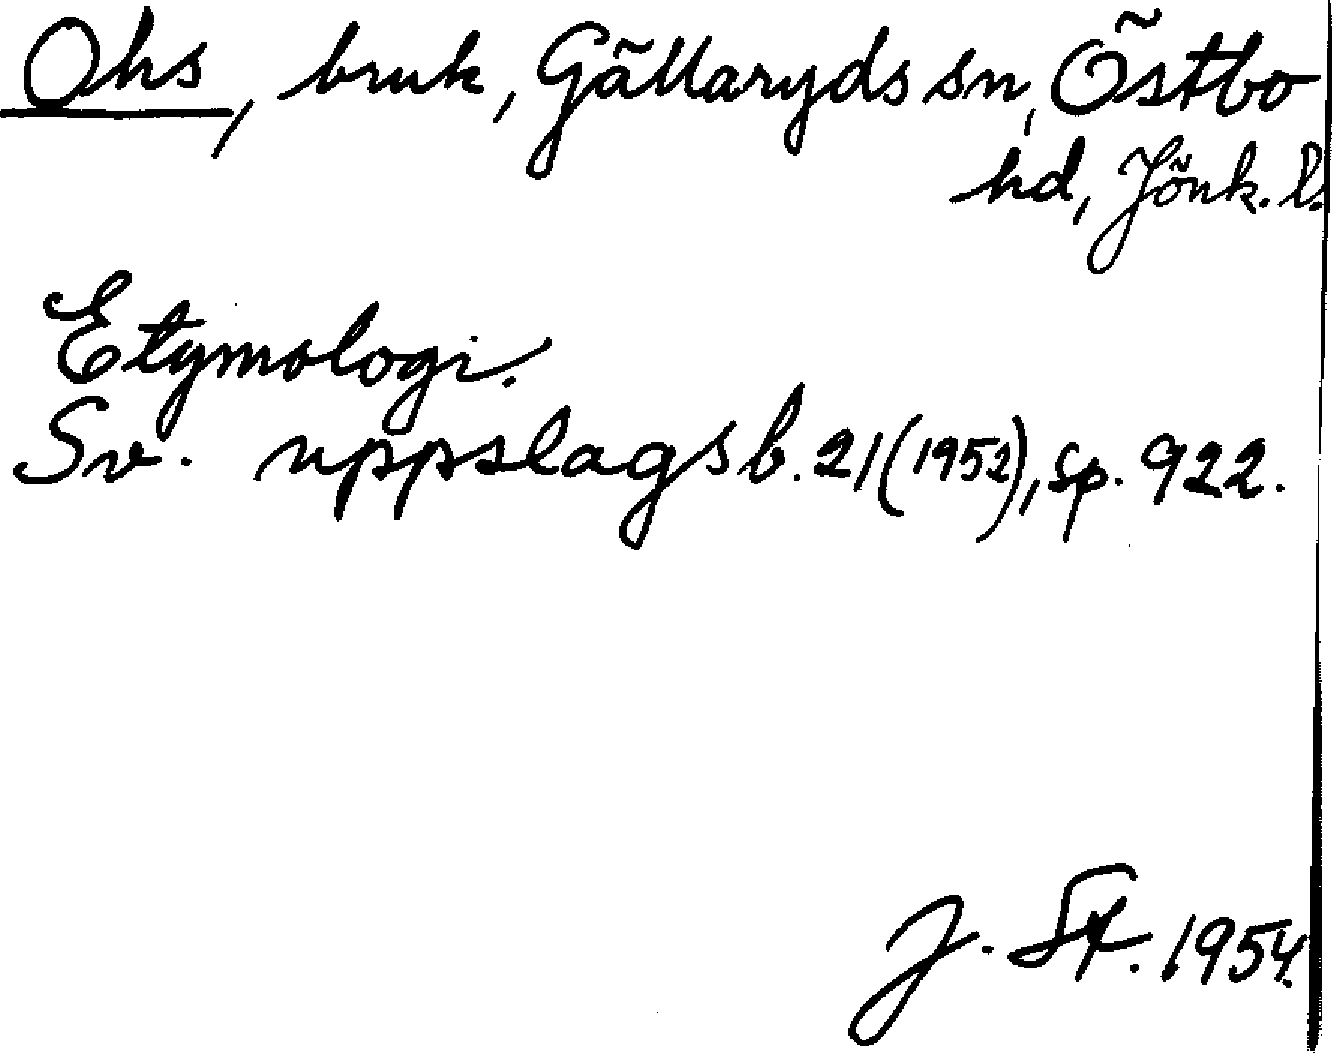 Ohs, bruk, Gällaryds sn, Östbo
hd, Jönk. l.
Etymologi.
Sv. uppslagsb. 21 (1952), sp. 922.
J. St. 1954.